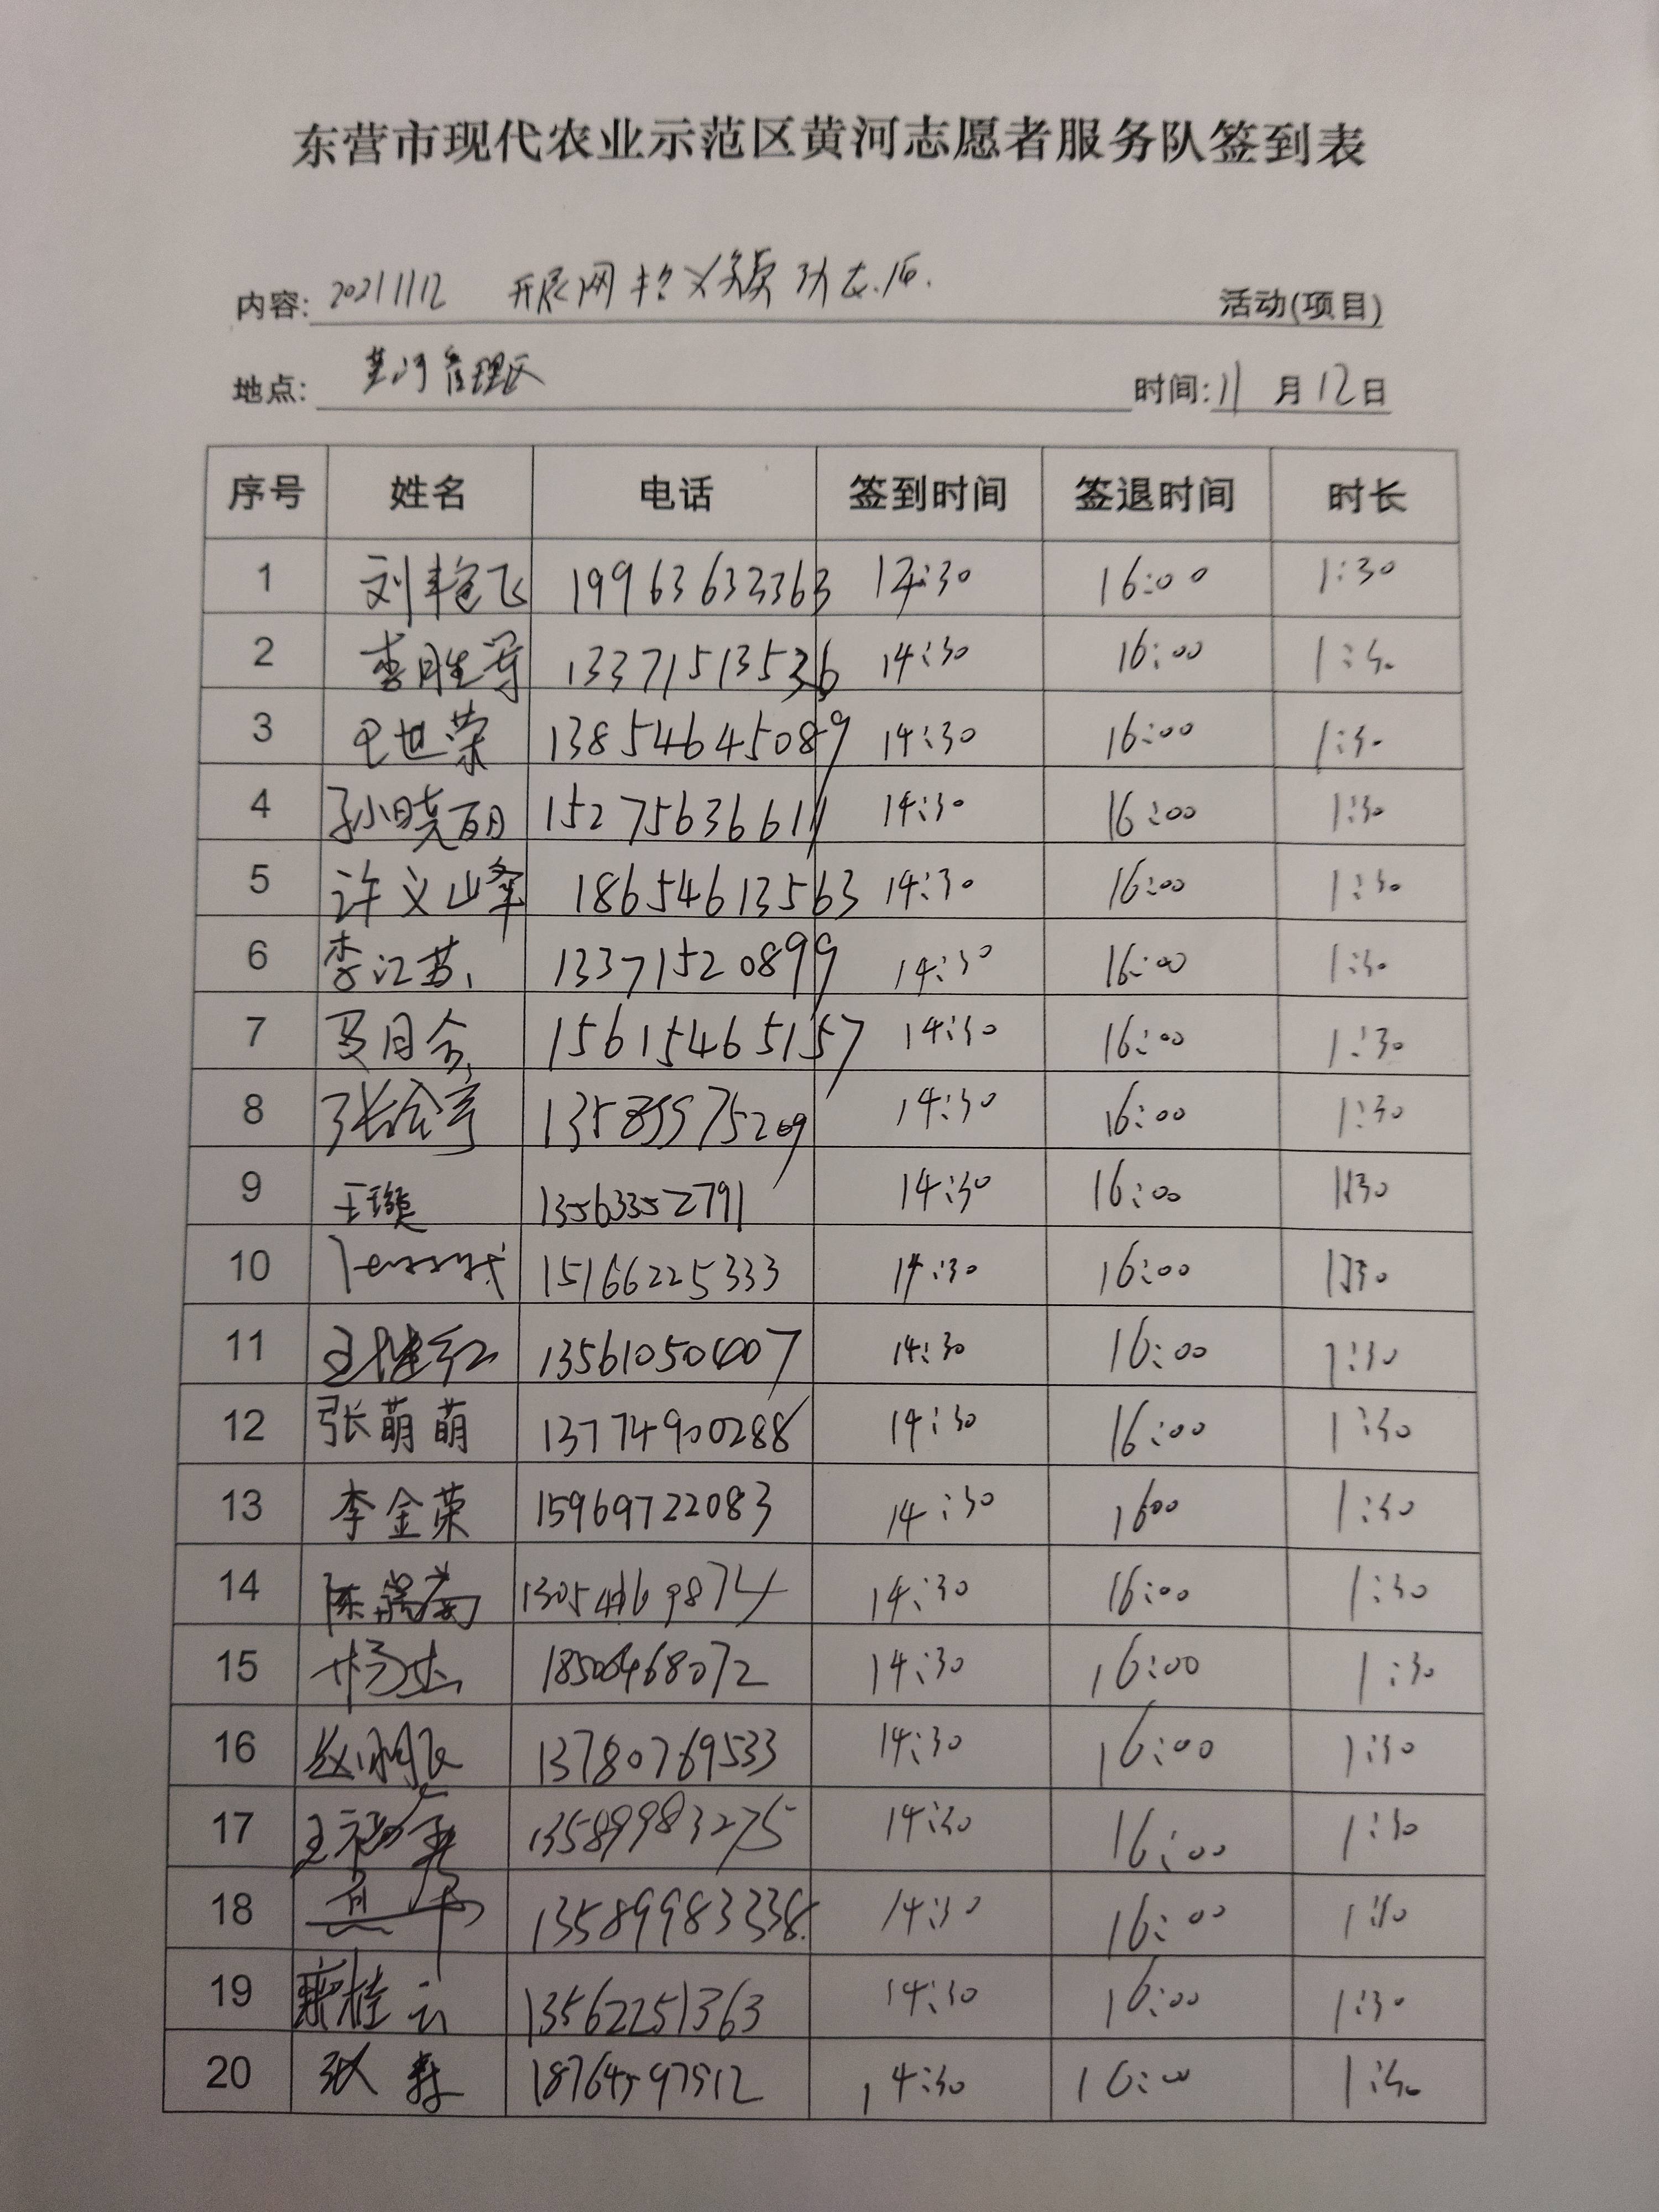 东营市现代农业示范区黄河志愿者服务队签到表
内容: 20211112 开展网格义务劳动 活动(项目)
地点: 黄河管理区 时间: 11 月 12 日
序号 姓名 电话 签到时间 签退时间 时长
1 刘艳飞 19963632363 14:30 16:00 1:30
2 李胜军 13371513536 14:30 16:00 1:30
3 世荣 13854645089 14:30 16:00 1:30
4 孙晓丽 15275636611 14:30 16:00 1:30
5 许义峰 18654613563 14:30 16:00 1:30
6 李江苏 13371520899 14:30 16:00 1:30
7 15615465157 14:30 16:00 1:30
8 张会 13589975209 14:30 16:00 1:30
9 王璇 13563352791 14:30 16:00 1:30
10 15166225333 14:30 16:00 1:30
11 王建红 13561050007 14:30 16:00 1:30
12 张萌萌 13774900288 14:30 16:00 1:30
13 李金荣 15969722083 14:30 16:00 1:30
14 陈 13054669874 14:30 16:00 1:30
15 杨杰 18500468072 14:30 16:00 1:30
16 赵 13780769533 14:30 16:00 1:30
17 王 13589983275 14:30 16:00 1:30
18 13589983238 14:30 16:00 1:30
19 桂云 13562251363 14:30 16:00 1:30
20 张 18764597912 14:30 16:00 1:30